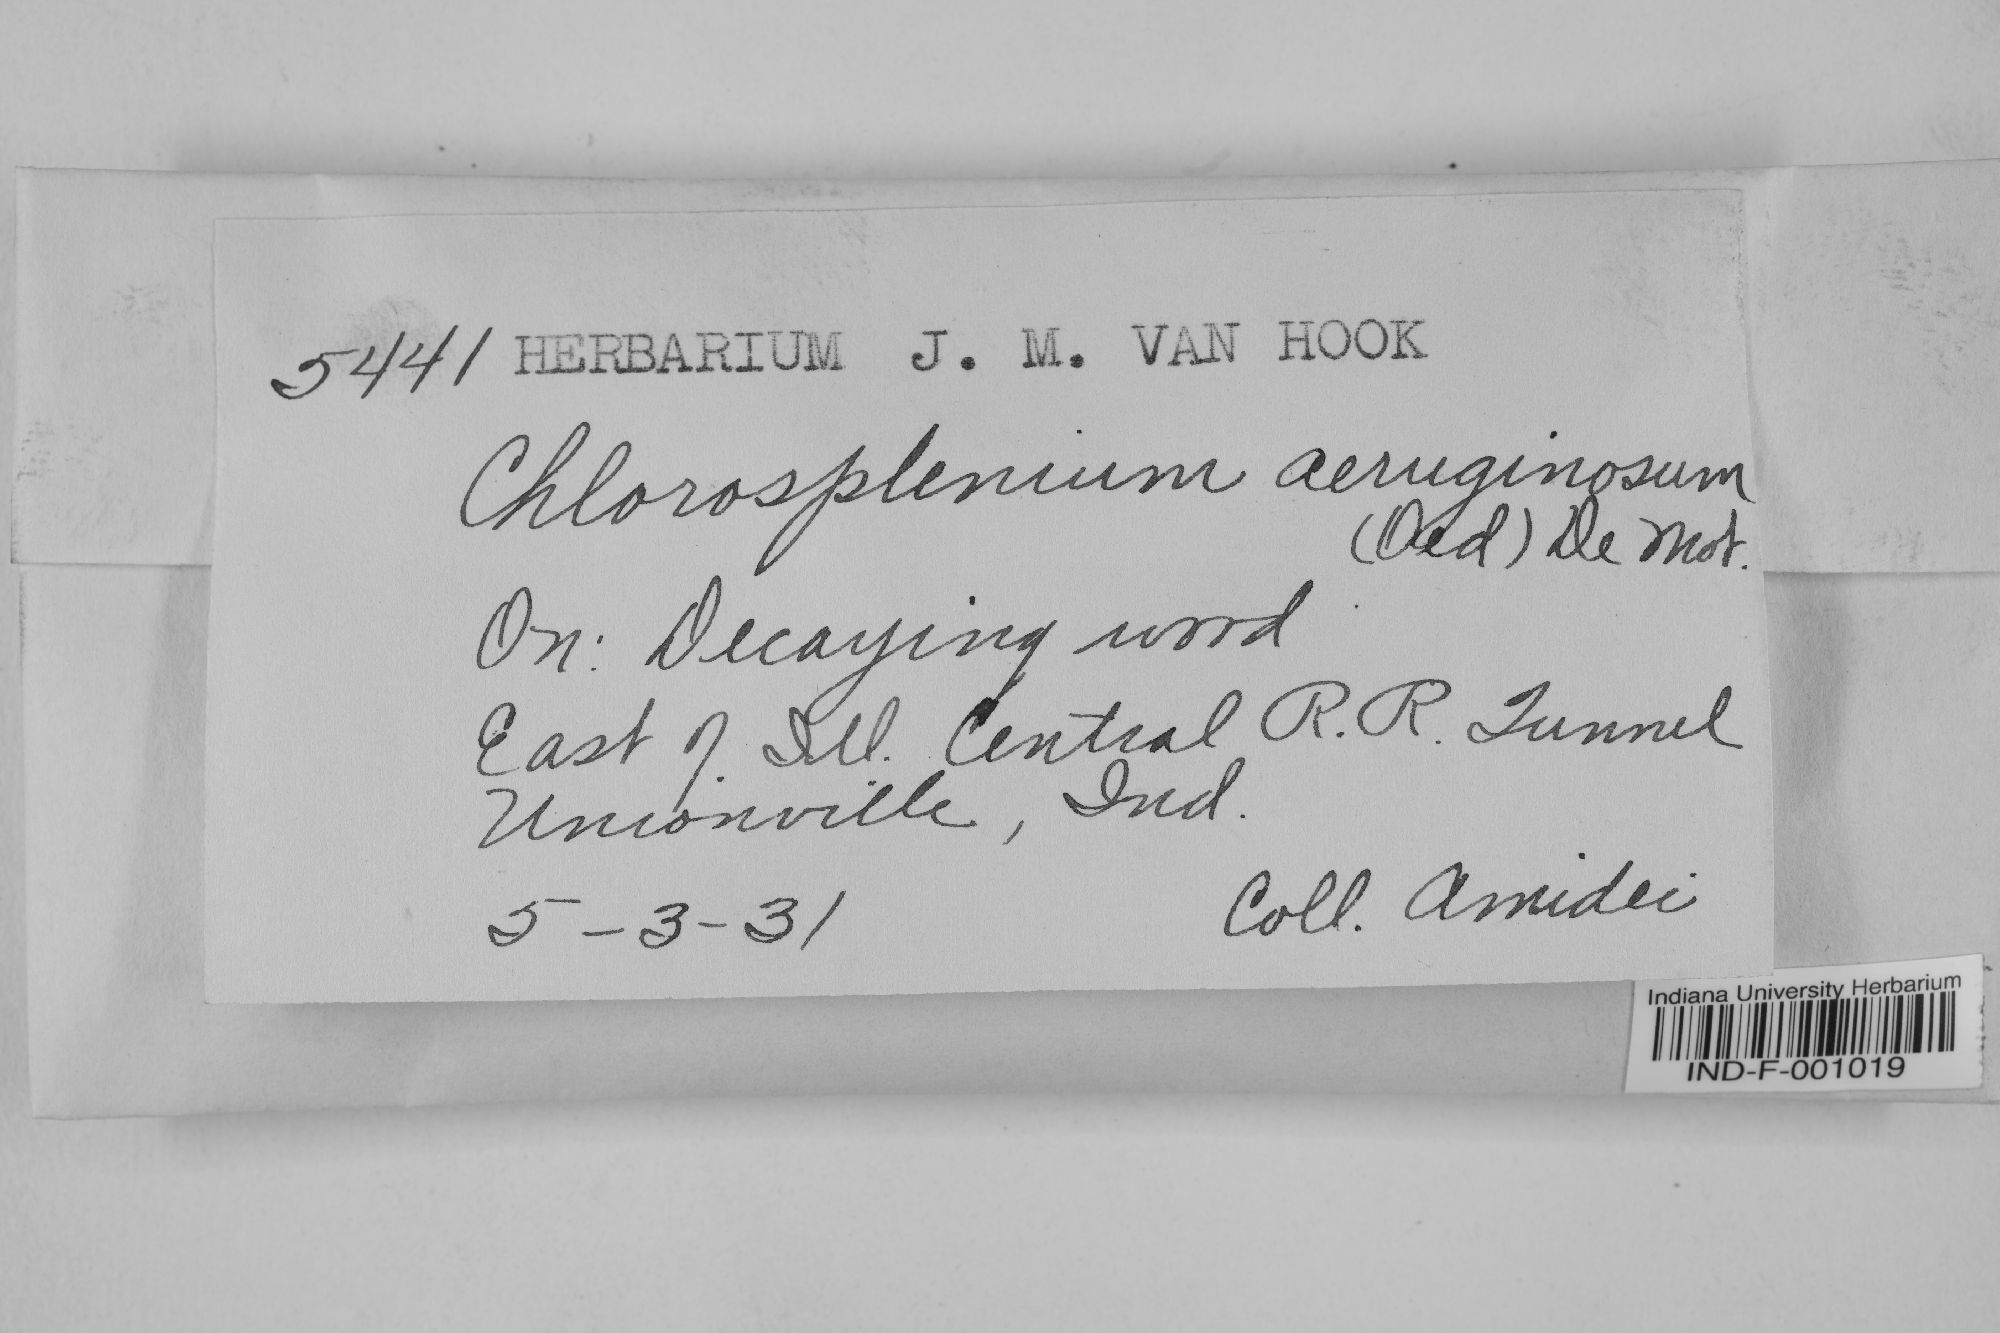 5441 HERBARIUM J. M. VAN HOOK
Chlorosplenium aeruginosum
(Oed) De Not.
On: Decaying wood
East of Ill. Central R.R. Tunnel
Unionville, Ind.
5-3-31 Coll. Amidei
Indiana University Herbarium
IND-F-001019